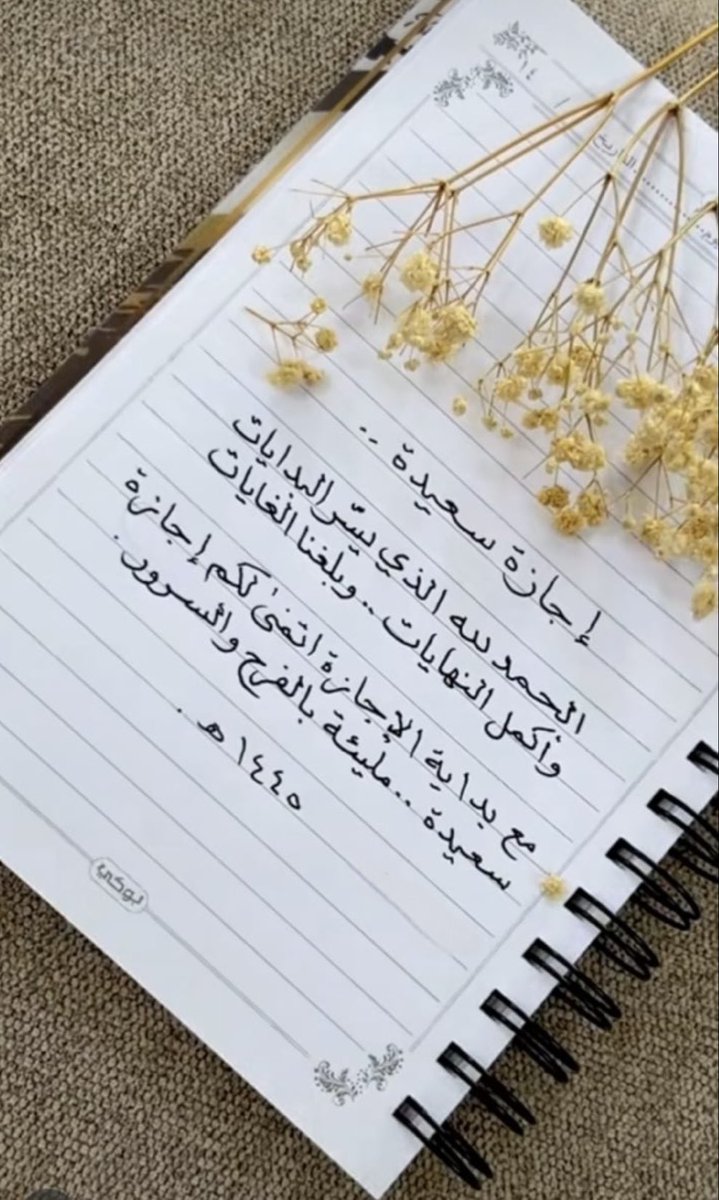 ١٤ /
التاريخ
إجازة سعيدة ..
الحمد لله الذي يسّر البدايات
وأكمل النهايات .. وبلغنا الغايات
مع بداية الإجازة اتمنى لكم إجازة
سعيدة .. مليئة بالفرح والسرور .
١٤٤٥ هـ .
بوكي